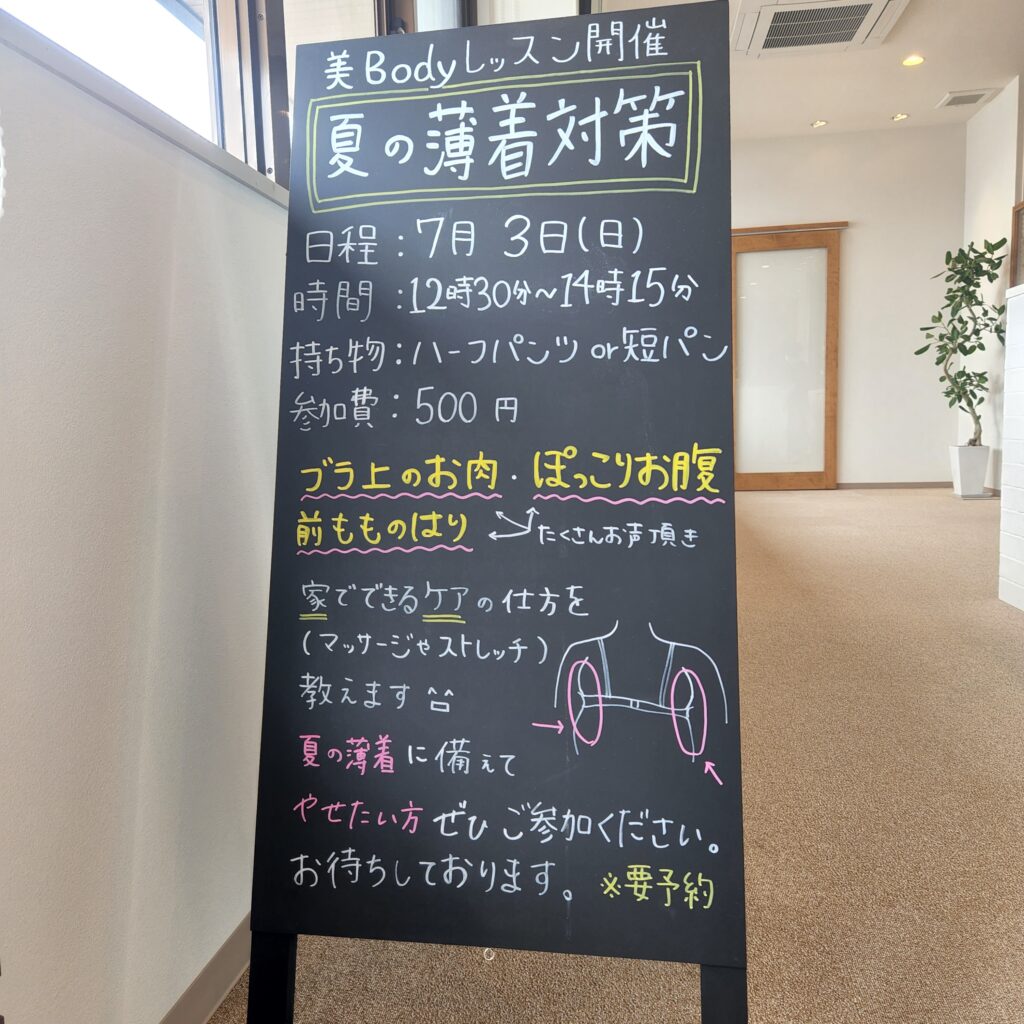 美Bodyレッスン開催
夏の薄着対策
日程：7月 3日(日)
時間：12時30分～14時15分
持ち物：ハーフパンツ or 短パン
参加費：500 円
ブラ上のお肉・ぽっこりお腹
前もものはり たくさんお声頂き
家でできるケアの仕方を
(マッサージやストレッチ)
教えます
夏の薄着に備えて
やせたい方 ぜひ ご参加ください。
お待ちしております。 ※要予約